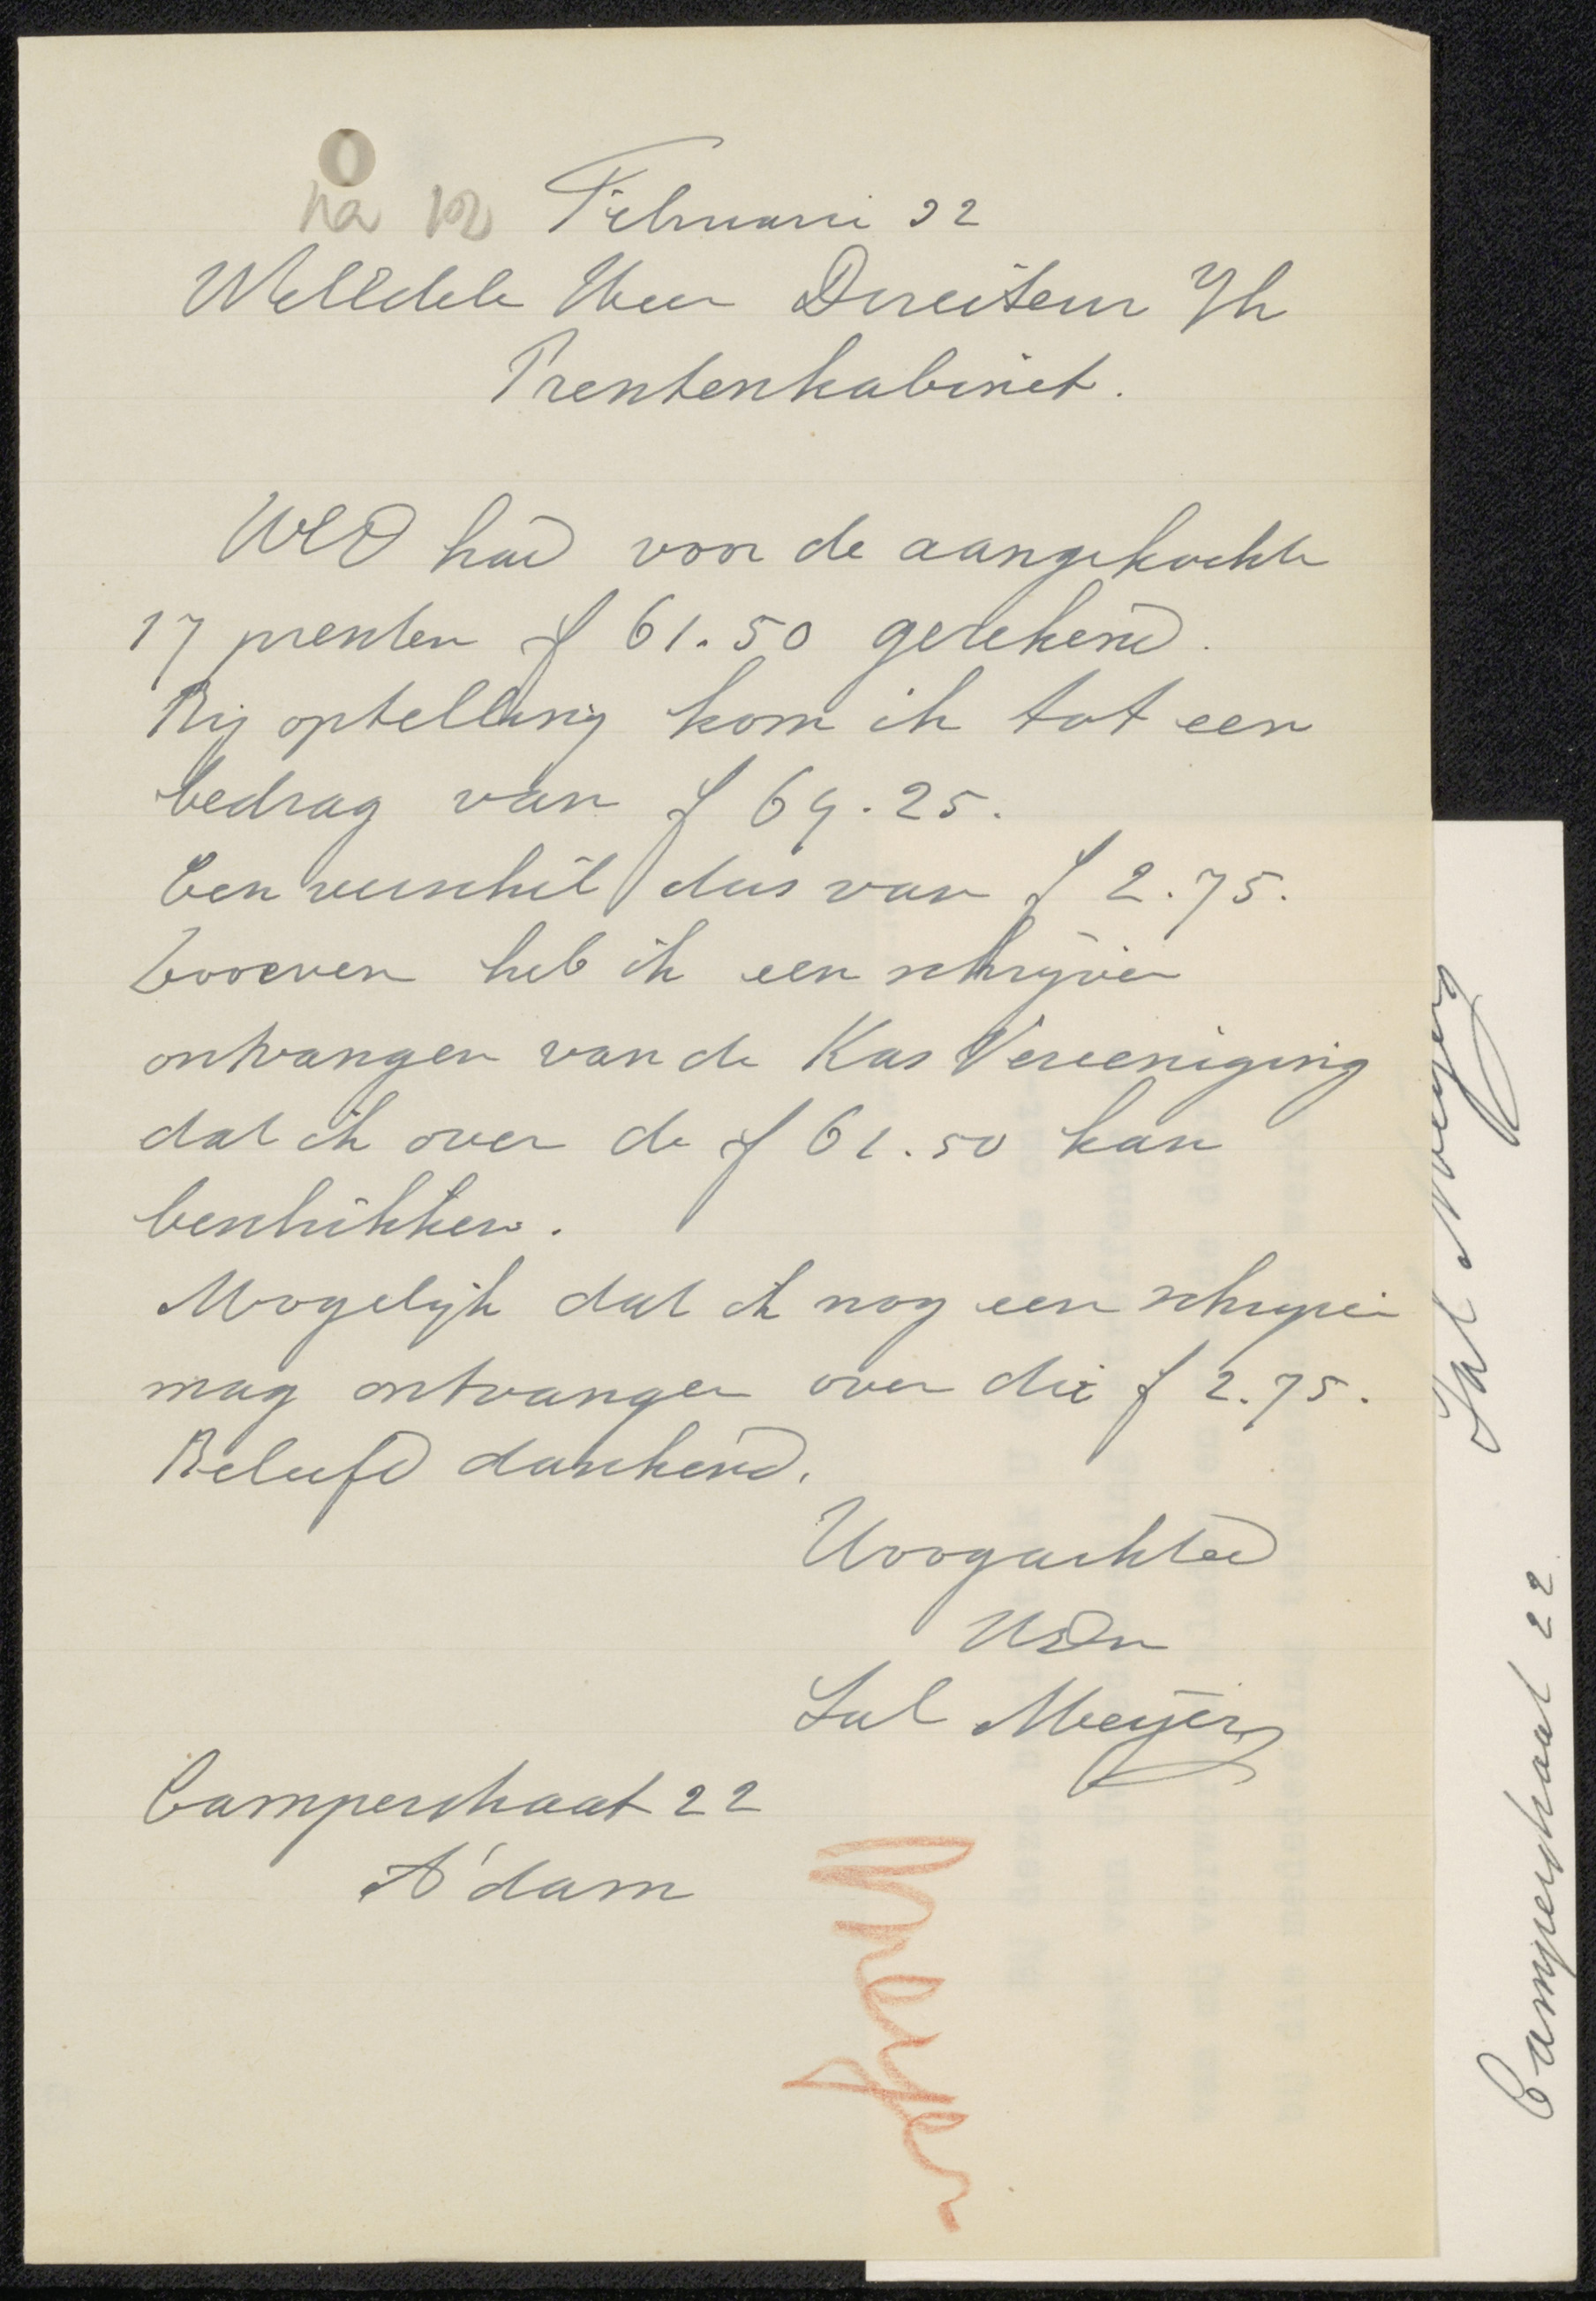 na 12 Februari 32
WelEdele Heer Direkteur Yh
Prentenkabinet.
WED had voor de aangekochte
17 prenten f 61.50 gerekend.
Bij optelling kom ik tot een
bedrag van f 64.25.
Een verschil dus van f 2.75.
Zooeven heb ik een schrijven
ontvangen van de Kas Vereeniging
dat ik over de f 61.50 kan
beschikken.
Mogelijk dat ik nog een schrijven
mag ontvangen over die f 2.75.
Beleefd dankend.
Hoogachtend
UEDn
Sal Meijer
Camperstraat 22
A'dam
Meyer
Sal Meijer
Camperstraat 22